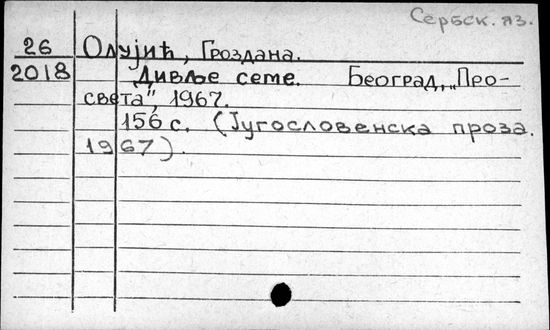 Сербск. яз.
26 Олујић, Гроздана.
2018 Дивље семе. Београд, „Про-
света", 1967.
156 с. (Југословенска проза.
1967).